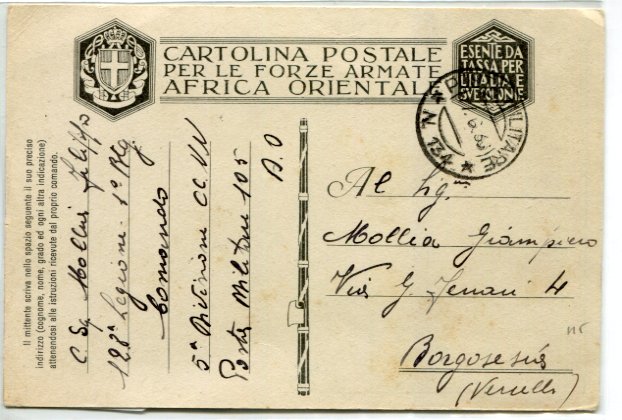 CARTOLINA POSTALE
PER LE FORZE ARMATE
AFRICA ORIENTALE
ESENTE DA
TASSA PER
L'ITALIA E
Il mittente scriva nello spazio seguente il suo preciso
indirizzo (cognome, nome, grado ed ogni altra indicazione)
attenendosi alle istruzioni ricevute dal proprio comando.
C. Sq. Mollia Filippo
128ª Legione - 1º Btg
Comando
5ª Divisione CC. NN
Posta Militare 105
A.O
N * POSTA MILITARE *
134
Al Sig.
Mollia Giampiero
Via G. Ferrari 4
Borgosesia
(Vercelli)